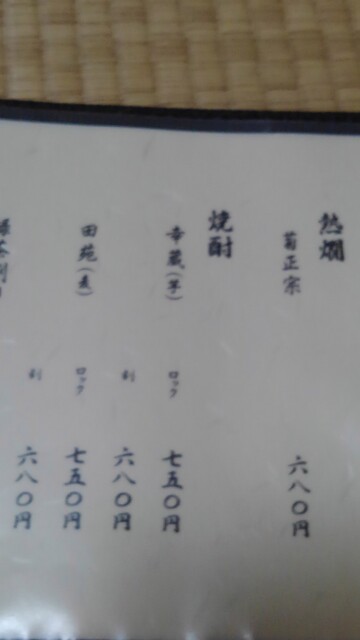 熱燗
菊正宗 六八〇円
焼酎
幸蔵(芋) ロック 七五〇円
割 六八〇円
田苑(麦) ロック 七五〇円
割 六八〇円
緑茶割り